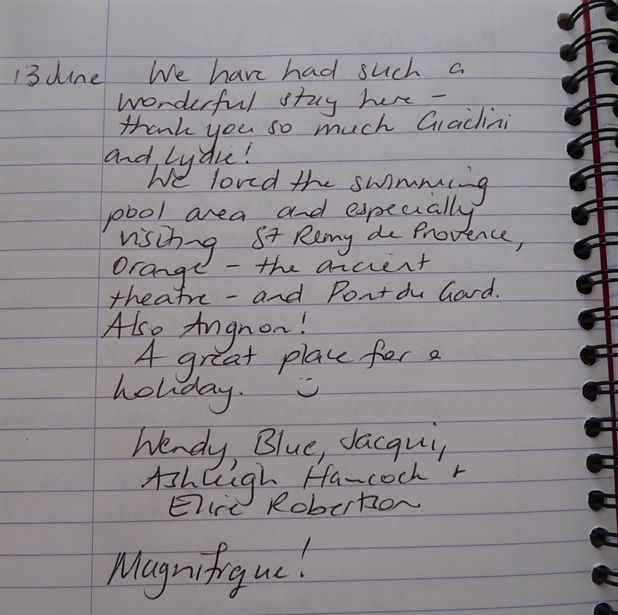 13 June We have had such a
wonderful stay here -
thank you so much
and Lydie!
We loved the swimming
pool area and especially
visiting St Remy de Provence,
Orange - the ancient
theatre - and Pont du Gard.
Also Avignon!
A great place for a
holiday. :)
Wendy, Blue, Jacqui,
Ashleigh Hancock +
Robertson
Magnifique!